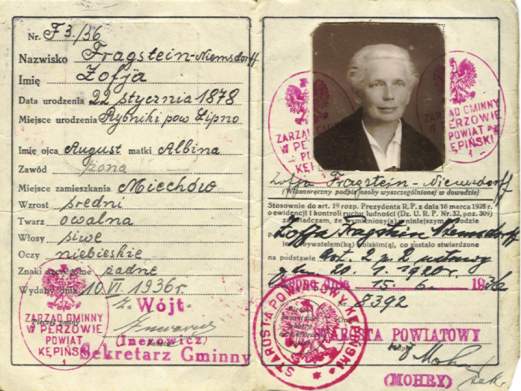 Nr. F3./36
Nazwisko Fragstein-Niemsdorff
Imię Zofja
Data urodzenia 22 stycznia 1878
Miejsce urodzenia Rybniki pow Lipno
Imię ojca August matki Albina
Zawód żona
Miejsce zamieszkania Miechów
Wzrost średni
Twarz owalna
Włosy siwe
Oczy niebieskie
Znaki żadne
Wydany dnia 10.VI.1936r.
ZARZĄD GMINNY
W PERZOWIE
POWIAT
KĘPIŃSKI
z. Wójt-
(Inerowicz)
Sekretarz Gminny
ZARZĄD GMINNY
W PERZOWIE
POWIAT
KĘPIŃSKI
ZARZĄD GMINNY
W PERZOWIE
POWIAT
KĘPIŃSKI
Zofja Fragstein-Niemsdorff
(Własnoręczny podpis osoby wyszczególnionej w dowodzie)
Stosownie do art. 1º rozp. Prezydenta R. P. z dnia 16 marca 1928 r.
o ewidencji i kontroli ruchu ludności (Dz. U. R. P. Nr. 32, poz. 309)
niniejszym dowodzie
Zofja Fragstein Niemsdorff
jest obywatelem(ką) polskim(ą), co zostało stwierdzone
na podstawie art. 2 p. 2 ustawy
z dn. 20. 1. 1920 r.
Kępno, dnia 15.6. 1936
L. 2392
STAROSTA POWIATOWY KĘPIŃSKI
STAROSTA POWIATOWY
wz
(MOHRY)